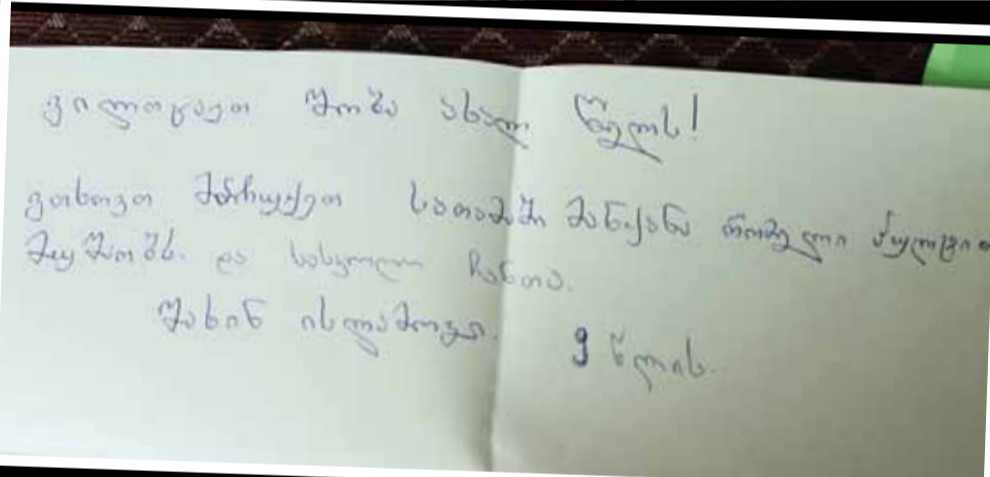 გილოცავთ შობა ახალ წელს!
გთხოვთ მაჩუქეთ სათამაშო მანქანა რომელიც პულტით
მუშაობს. და სასკოლო ჩანთა.
შახინ ისლამოვი. 9 წლის.